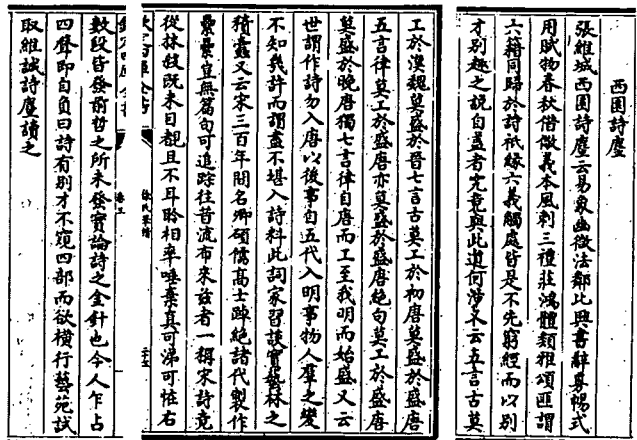 西園詩麈
張維城西園詩麈云易象幽微法鄰比興書辭專暢式
用賦物春秋借儆義本風刺三禮莊鴻體類雅頌匪謂
六籍同歸於詩祇緣六義觸處皆是不先窮經而以別
才別趣之說自蓋者究竟與此道何涉又云五言古莫
工於漢魏莫盛於晉七言古莫工於初唐莫盛於盛唐
五言律莫工於盛唐亦莫盛於盛唐絶句莫工於盛唐
莫盛於晚唐獨七言律自唐而工至我明而始盛又云
世謂作詩勿入唐以後事自五代入明事物人羣之變
不知幾許而謂盡不堪入詩料此詞家習談實藝林之
積蠹又云宋三百年間名卿碩儒高士踔絶諸代製作
纍纍豈無篇句可追踪往昔流布來兹者一槩宋詩竟
從抹殺既未目覩且不耳聆相率唾棄真可涕可怪右
數段皆發前哲之所未發實論詩之金針也今人乍占
四聲即自負曰詩有別才不窺四部而欲橫行藝苑試
取維誠詩麈讀之